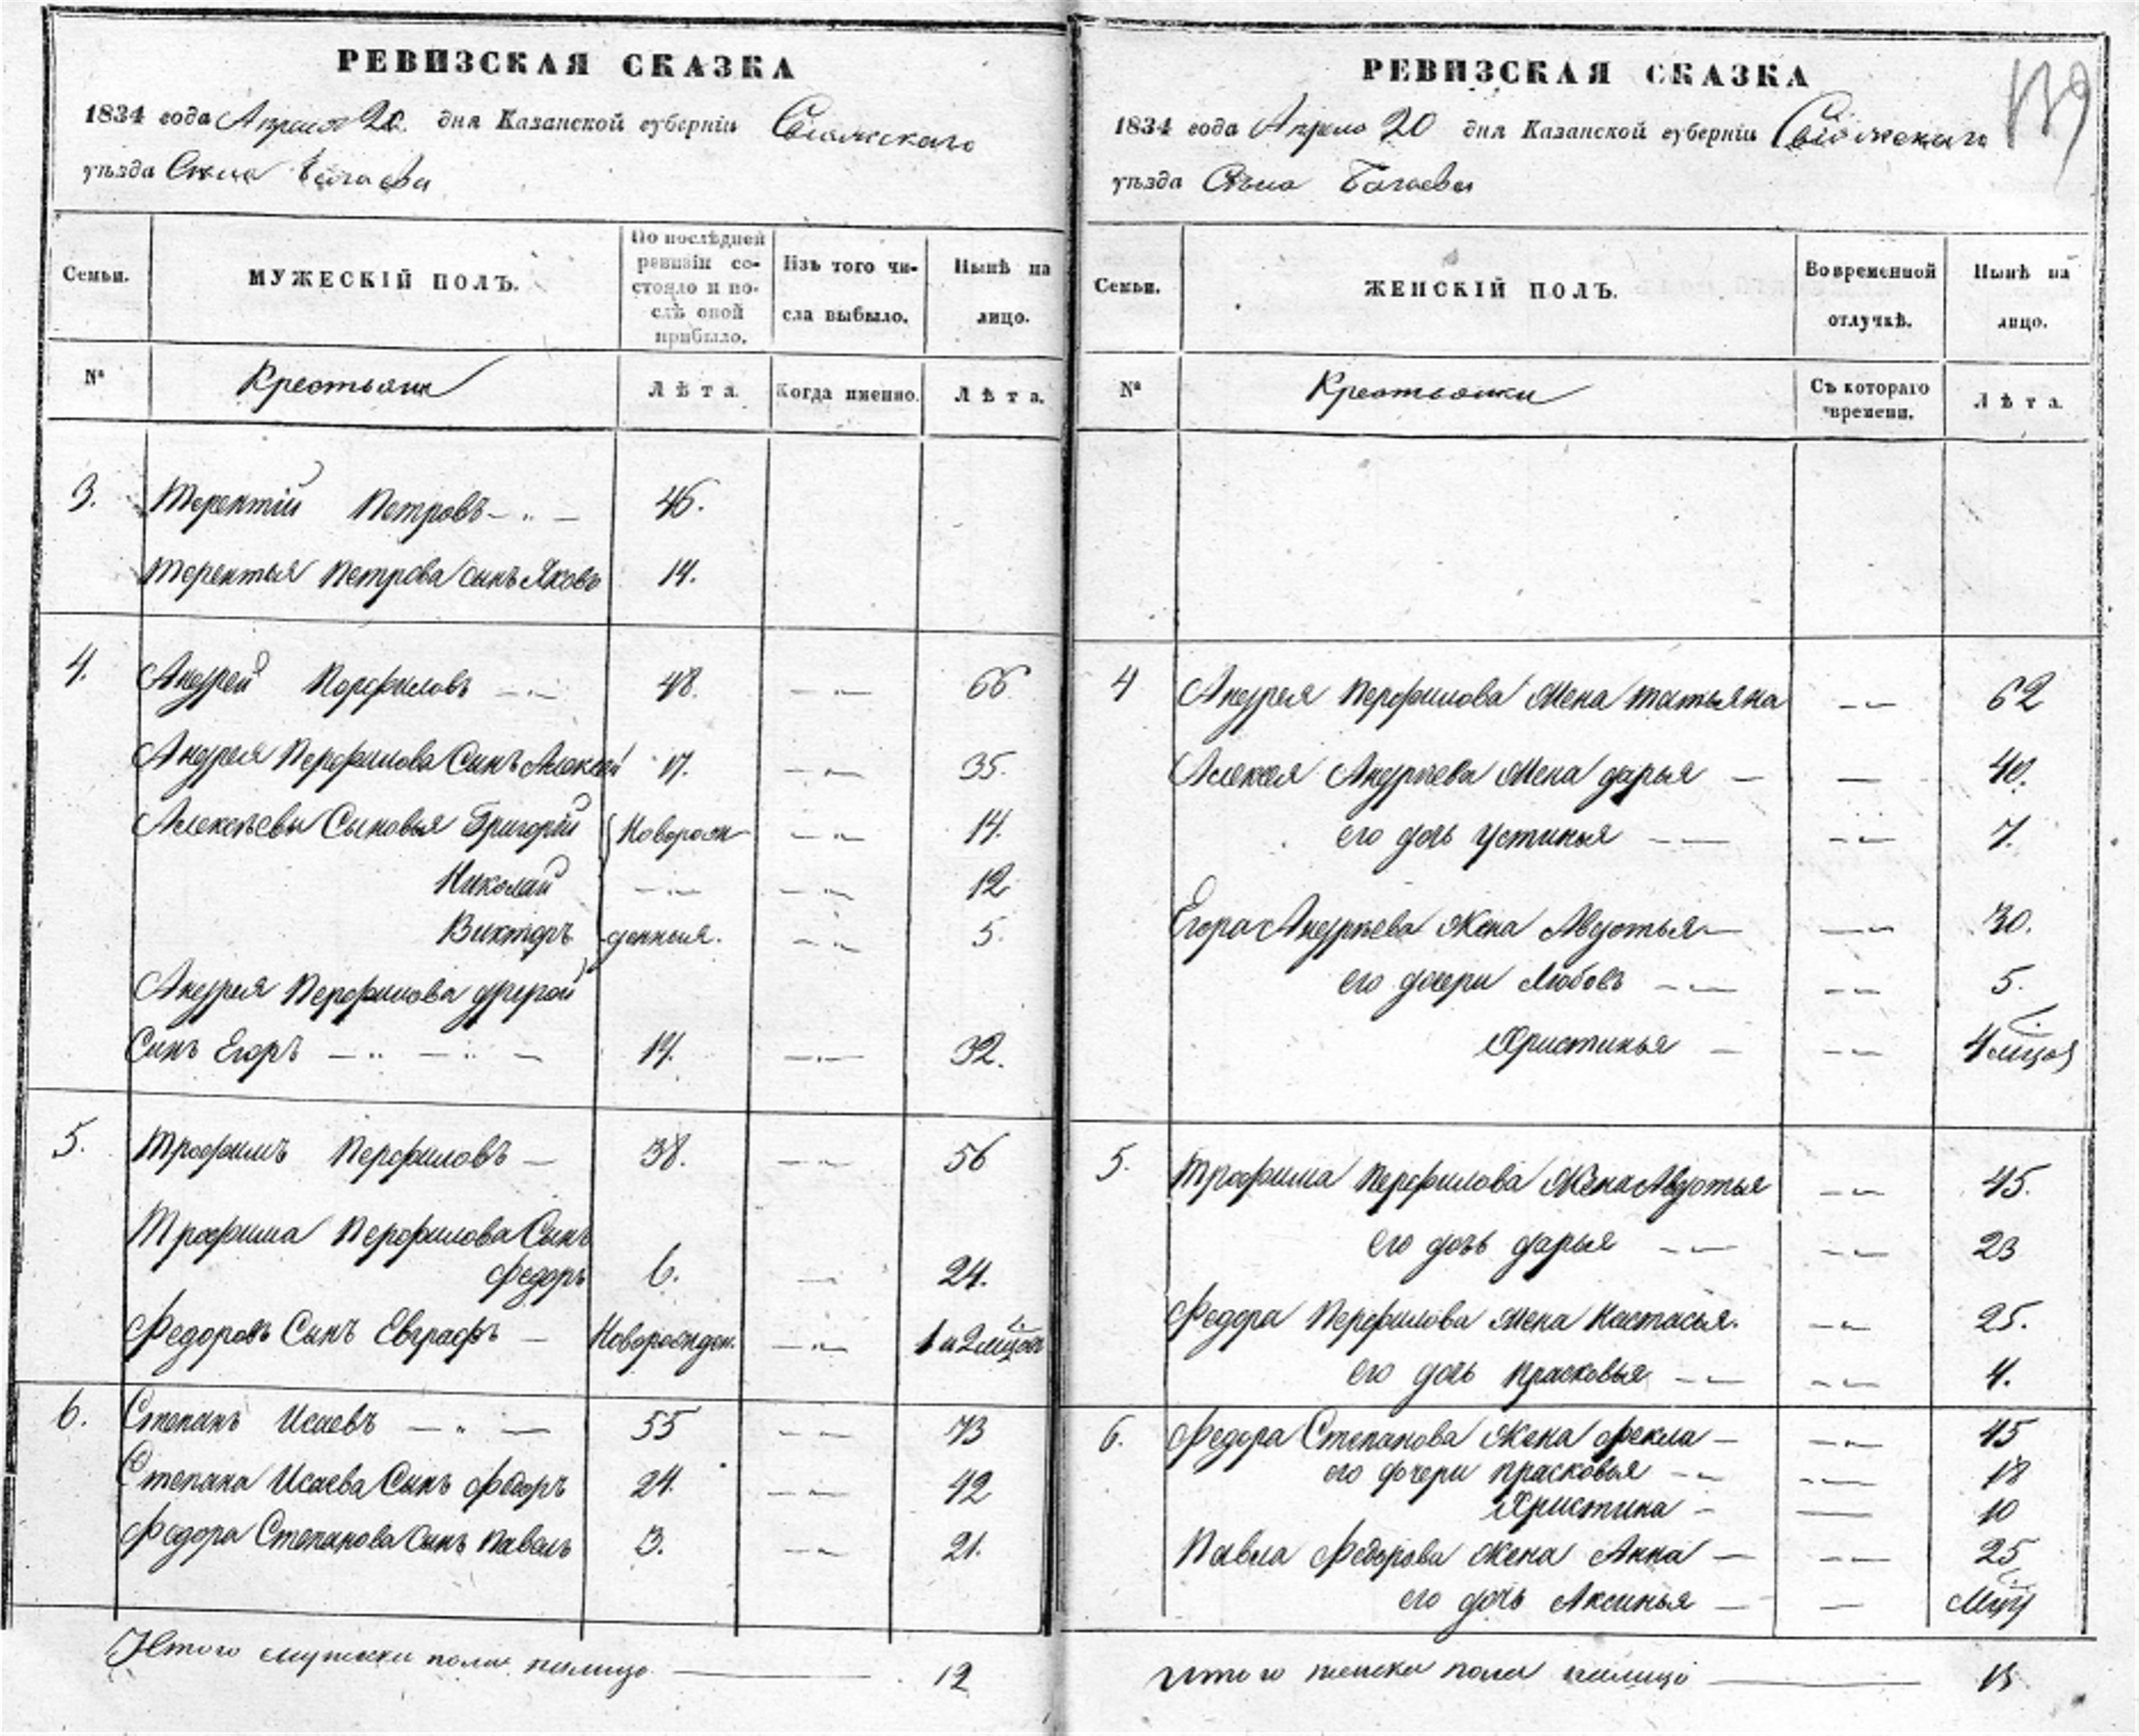 РЕВИЗСКАЯ СКАЗКА
1834 года Апреля 20 дня Казанской губернiи Свiяжскаго
уѣзда Села Бугаева
Семьи.
МУЖЕСКIЙ ПОЛЪ.
По послѣдней ревизiи состояло и послѣ оной прибыло.
Изъ того числа выбыло.
Нынѣ на лицо.
№ Крестьяне Лѣта. Когда именно. Лѣта.
3. Терентiй Петровъ 46.
Терентья Петрова сынъ Яковъ 14.
4. Андрей Перфиловъ 48. 66
Андрея Перфилова Сынъ Алексей 17. 35.
Алексѣевы Сыновья Григорiй Новорож 14.
Николай 12
Викторъ денныя. 5.
Андрея Перфилова другой
Сынъ Егоръ 14. 32.
5. Трофимъ Перфиловъ 38. 56
Трофима Перфилова Сынъ
Федоръ 6. 24.
Федоровъ Сынъ Евграфъ Новорожден. 1 и 2 мѣцов
6. Степанъ Исаевъ 55 73
Степана Исаева Сынъ Федоръ 24. 42
Федора Степанова Сынъ Павелъ 3. 21.
Итого мужеска пола налицо 12
РЕВИЗСКАЯ СКАЗКА
139
1834 года Апреля 20 дня Казанской губернiи Свiяжскаго
уѣзда Села Бугаева
Семьи.
ЖЕНСКIЙ ПОЛЪ.
Во временной отлучкѣ.
Нынѣ на лицо.
№ Крестьянки Съ котораго времени. Лѣта.
4 Андрея Перфилова Жена Татьяна 62
Алексея Андреева Жена Дарья 40.
его дочь Устинья 7.
Егора Андреева Жена Авдотья 30.
его дочери Любовь 5.
Христинья 4 мѣцов
5. Трофима Перфилова Жена Авдотья 45.
его дочь Дарья 23
Федора Перфилова Жена Настасья. 25.
его дочь Прасковья 4.
6. Федора Степанова Жена Фекла 45
его дочери Прасковья 18
Христина 10
Павла Федорова Жена Анна 25
его дочь Аксинья
Итого женска пола налицо 15